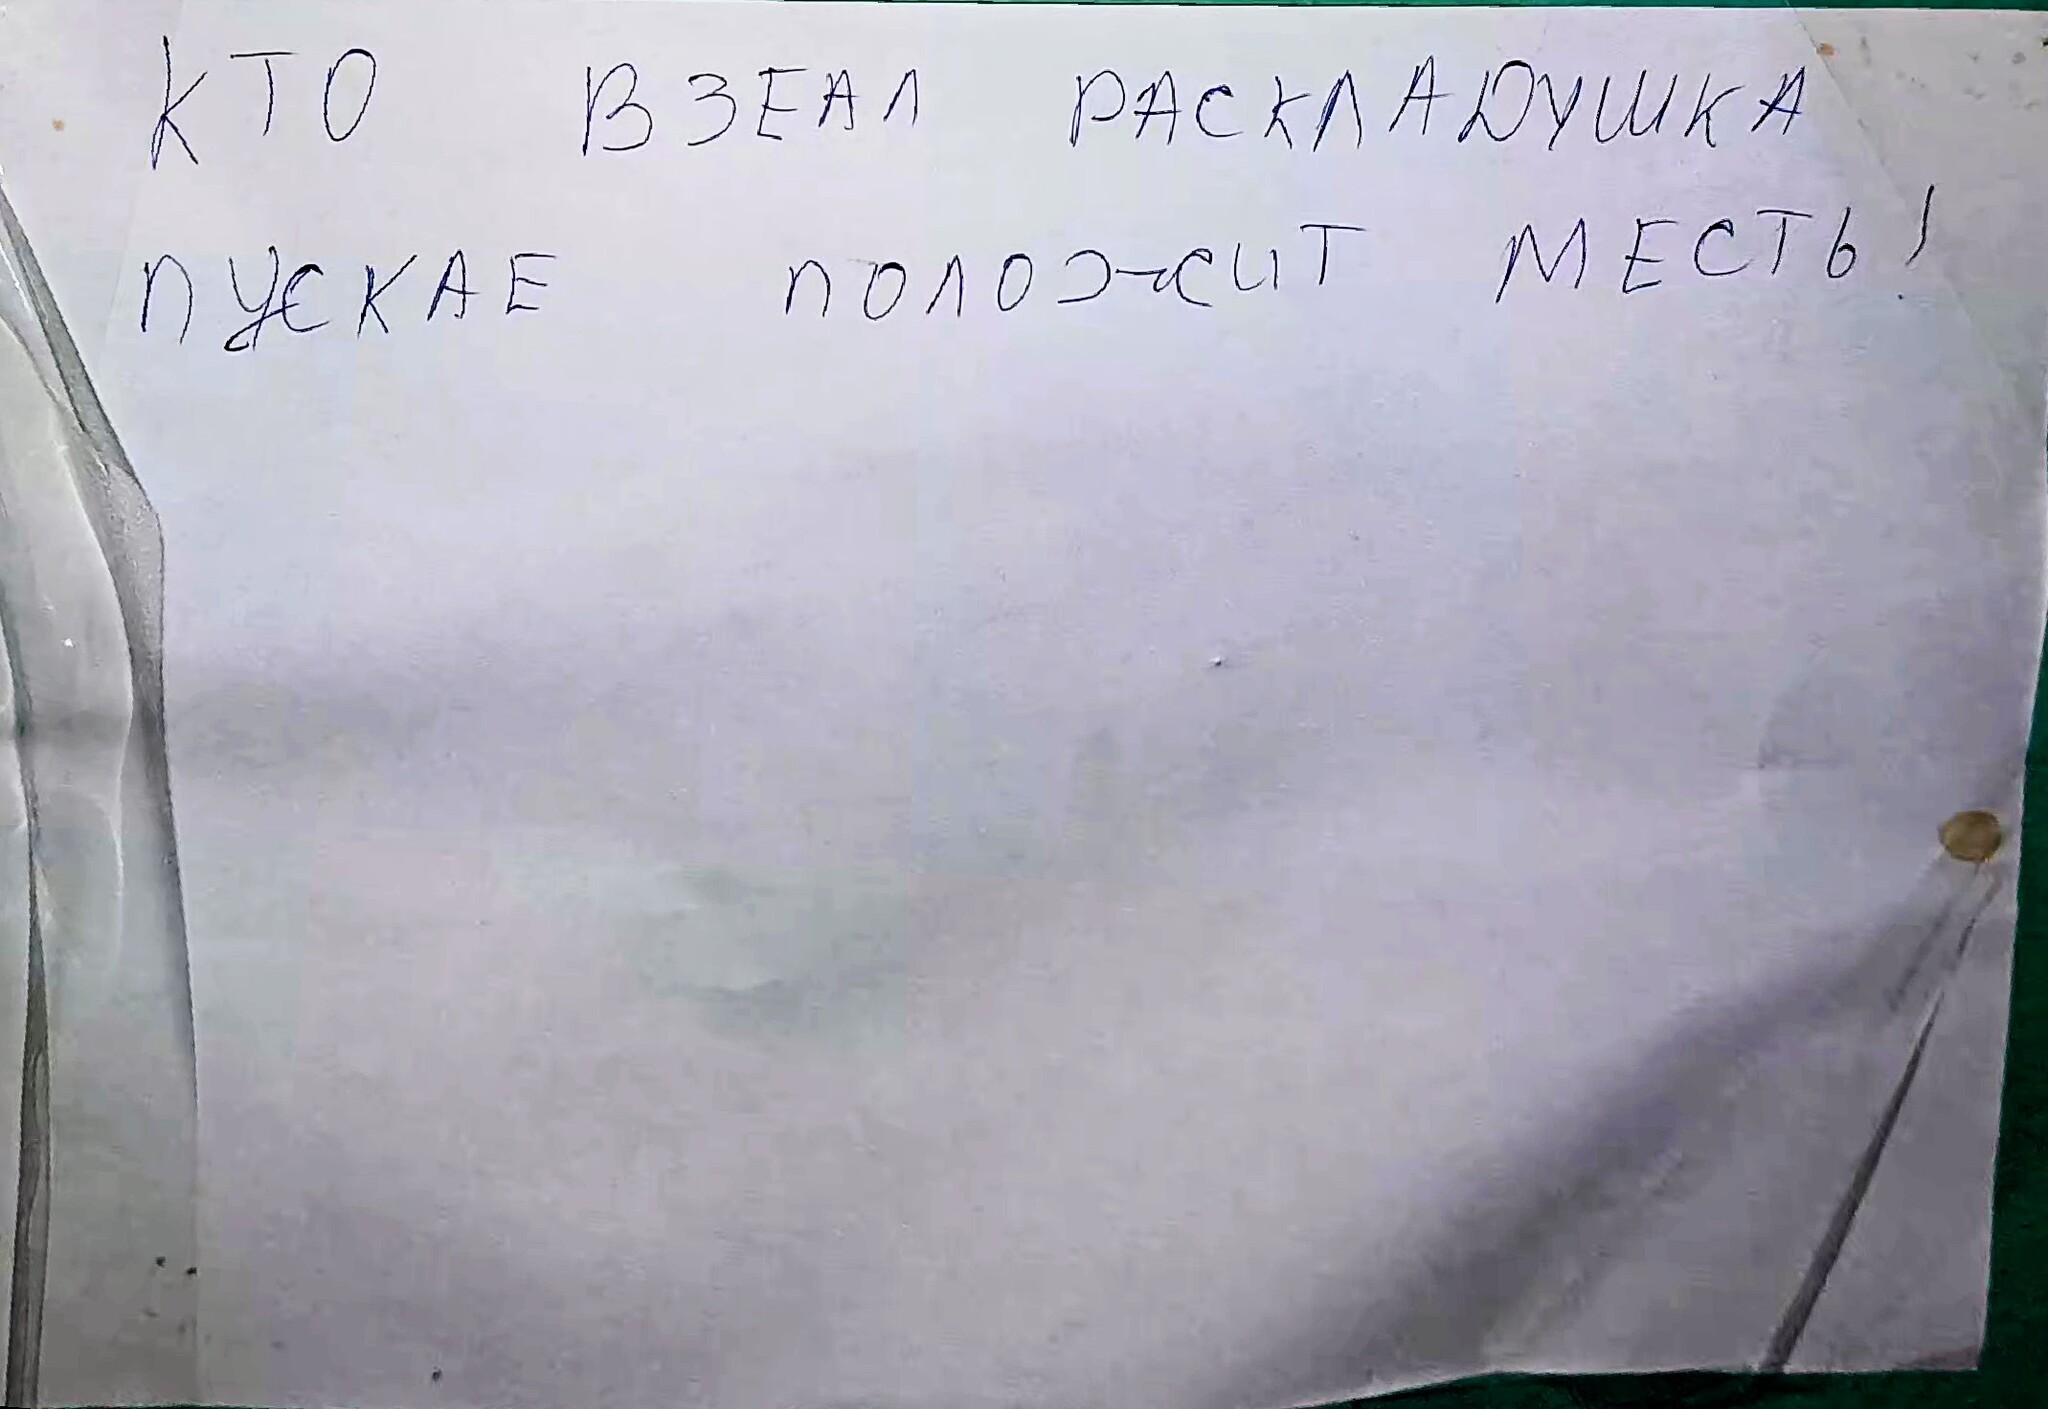 КТО ВЗЕАЛ РАСКЛАДУШКА
ПУСКАЕ ПОЛОЖИТ МЕСТЬ!